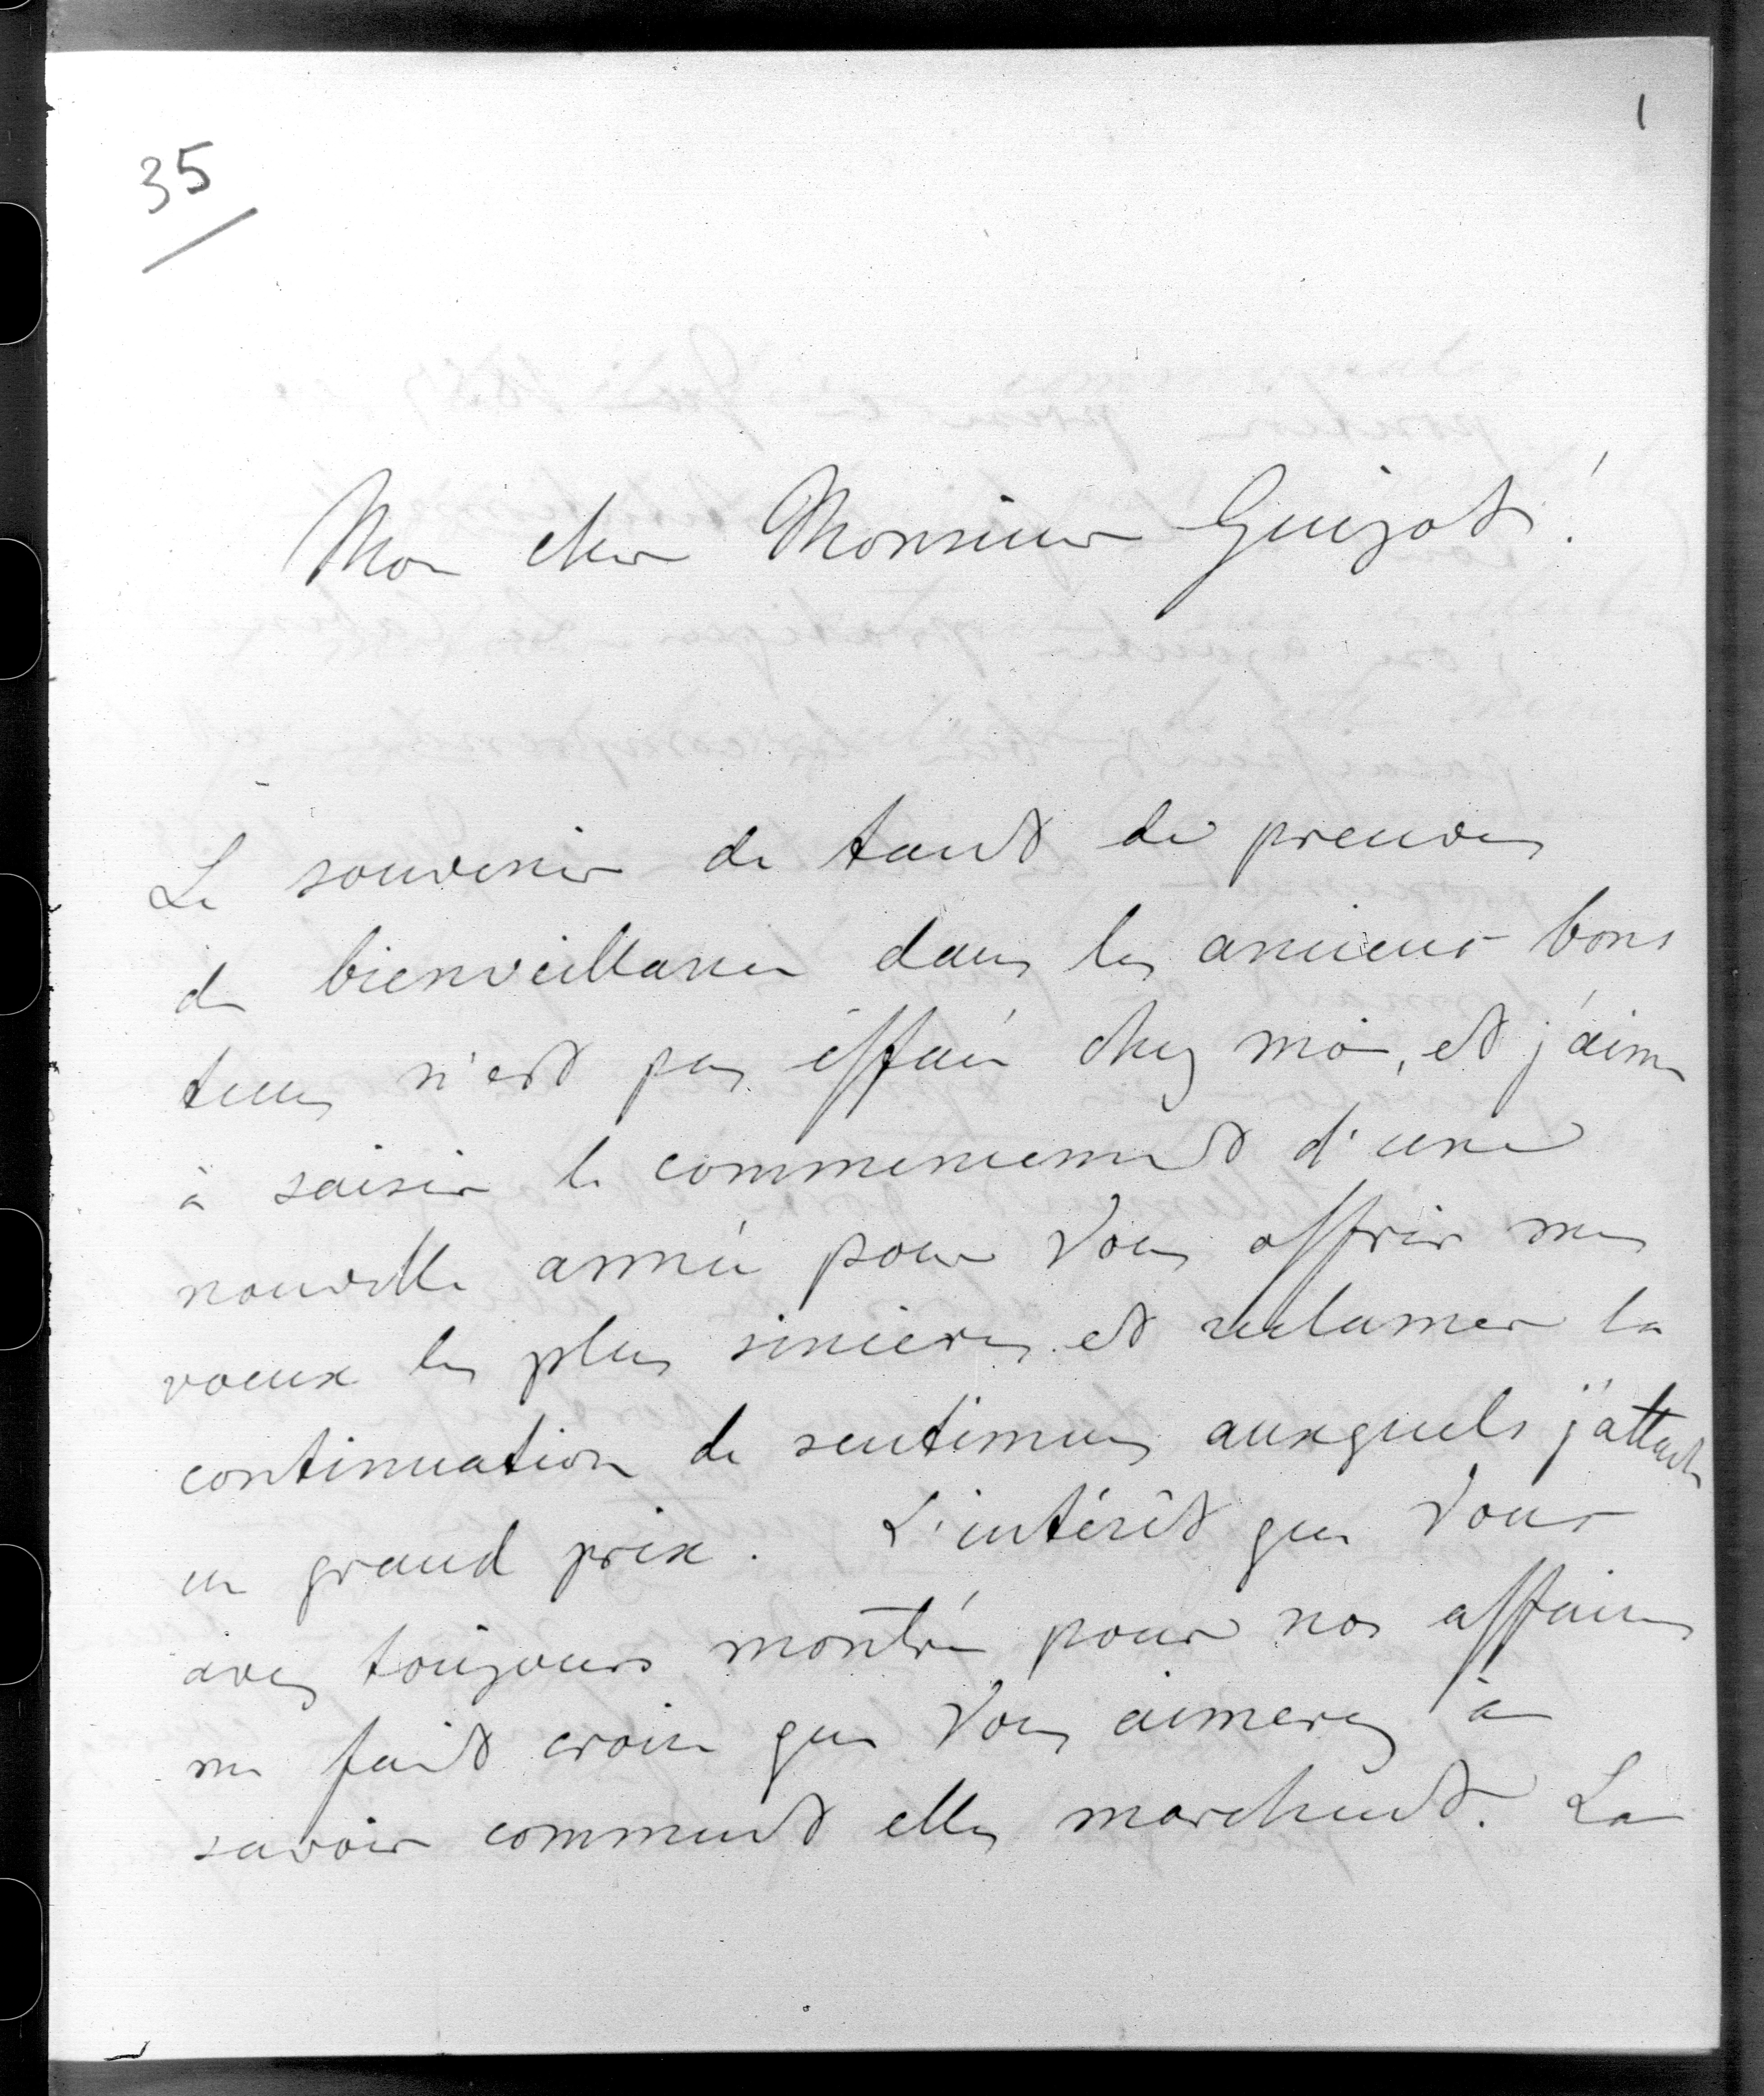 1
35
Mon cher Monsieur Guizot!
Le souvenir de tant de preuves
de bienveillance dans les anciens bons
tems n'est pas éffacé chez moi, et j'aime
à saisir le commencement d'une
nouvelle année pour Vous offrir mes
voeux les plus sincères et reclamer la
continuation de sentimens auxquels j'attache
un grand prix. L'intérêt que Vous
avez toujours montré pour nos affaires
me fait croire que Vous aimerez à
savoir comment elles marchent. La